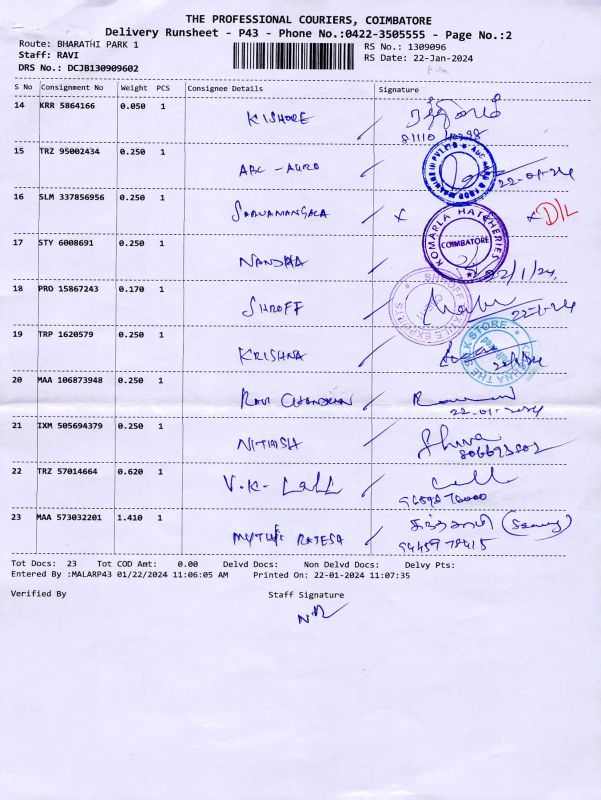 THE PROFESSIONAL COURIERS, COIMBATORE
Delivery Runsheet - P43 - Phone No.:0422-3505555 - Page No.:2
Route: BHARATHI PARK 1 RS No.: 1309096
Staff: RAVI RS Date: 22-Jan-2024
DRS No.: DCJB130909602
S No Consignment No Weight PCS Consignee Details Signature
14 KRR 5864166 0.050 1
KISHORE
81110
15 TRZ 95002434 0.250 1
ABC - AGRO
22-01-24
16 SLM 337856956 0.250 1
SARVAMANGALA x x D/L
KOMARLA HATCHERIES
COIMBATORE
17 STY 6008691 0.250 1
NANDHA 22/1/24
18 PRO 15867243 0.170 1
SHROFF
22-1-24
19 TRP 1620579 0.250 1
KRISHNA
20 MAA 106873948 0.250 1
RAVI CHANDRAN
22-01-2024
21 IXM 505694379 0.250 1
NITHISH Shiva
22 TRZ 57014664 0.620 1
V.K. Lall
23 MAA 573032201 1.410 1
94459 78415
Tot Docs: 23 Tot COD Amt: 0.00 Delvd Docs: Non Delvd Docs: Delvy Pts:
Entered By :MALARP43 01/22/2024 11:06:05 AM Printed On: 22-01-2024 11:07:35
Verified By Staff Signature